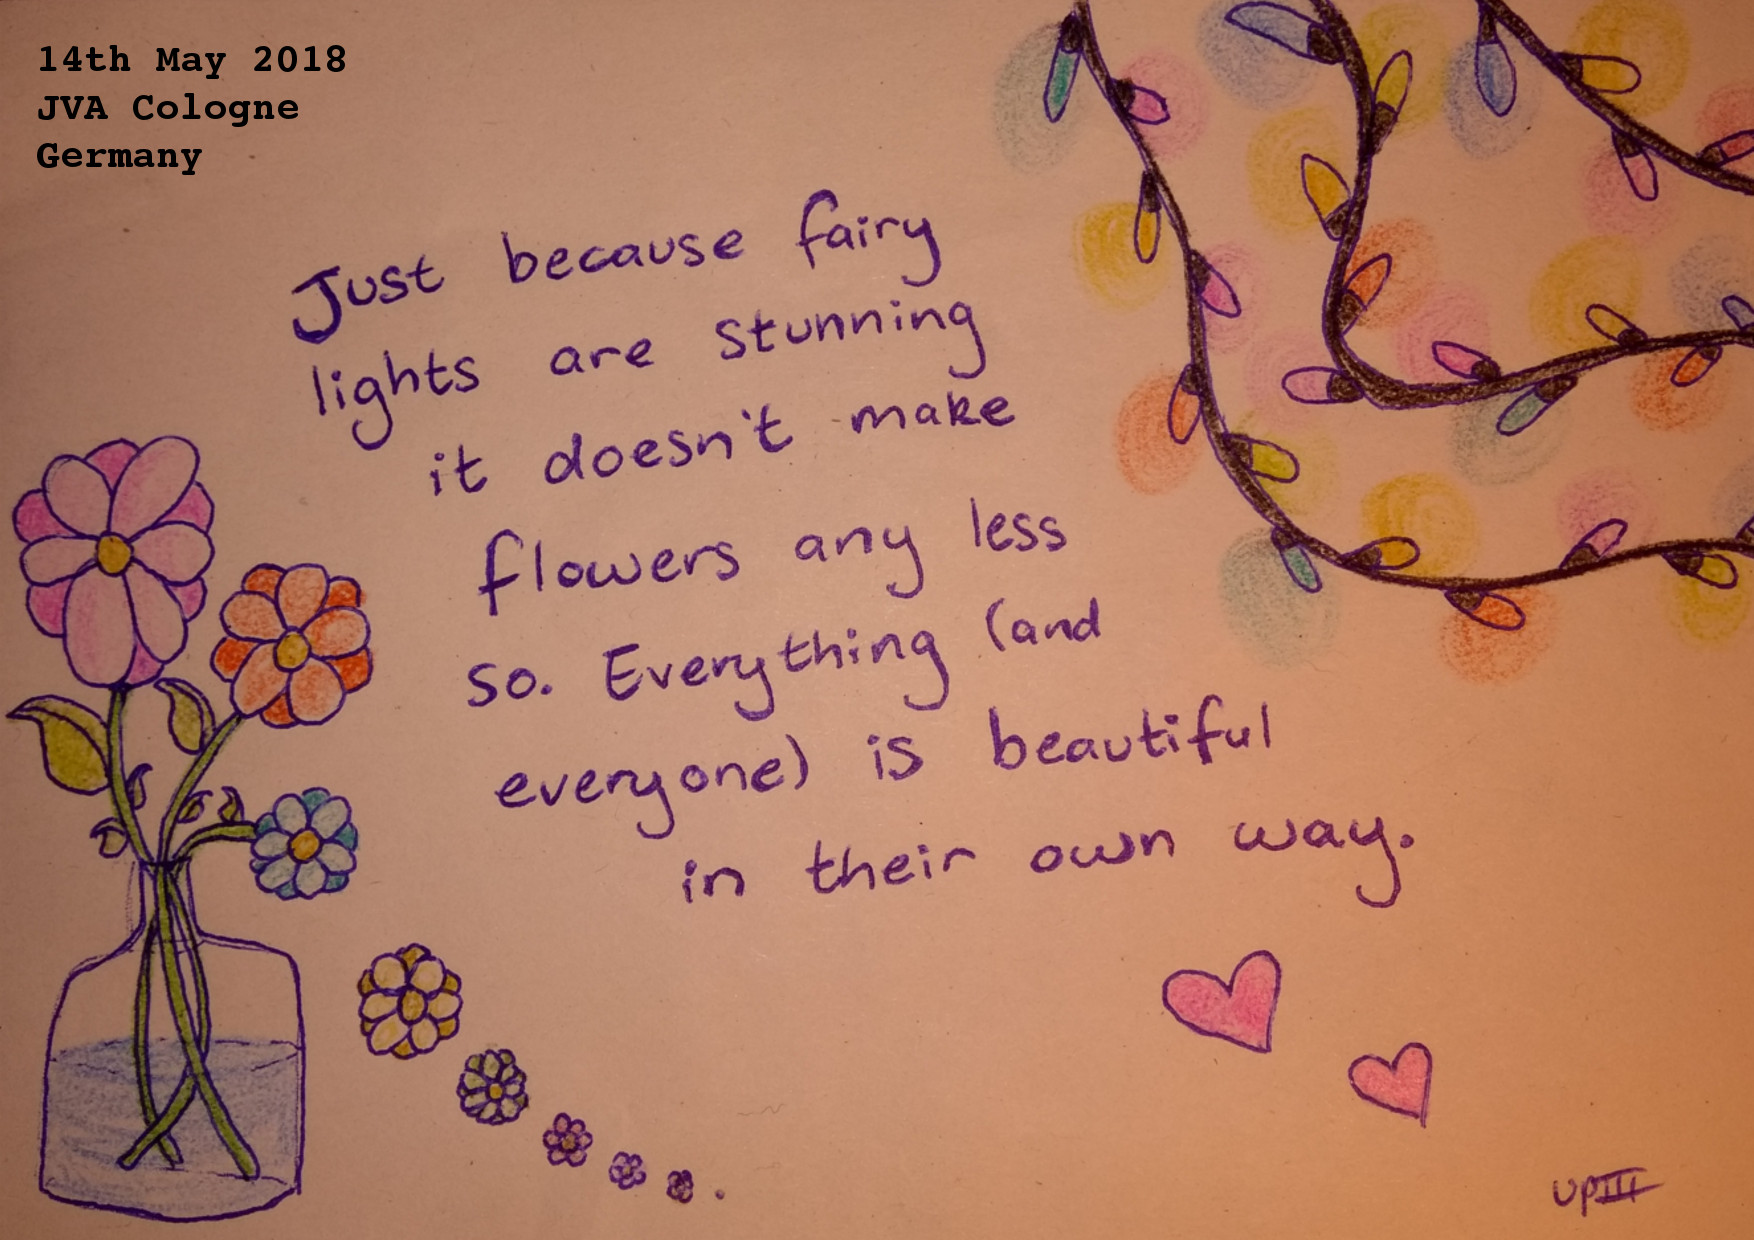 14th May 2018
JVA Cologne
Germany
Just because fairy
lights are stunning
it doesn't make
flowers any less
so. Everything (and
everyone) is beautiful
in their own way.
UPIII